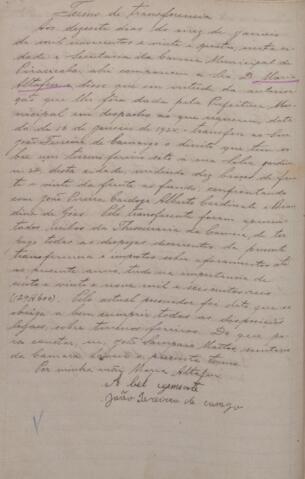 Termo de transferencia
Aos dezesete dias do mez de Janeiro
de mil novecentos e vinte e quatro, nesta ci-
dade e Secretaria da Camara Municipal de
Piracicaba, ahi compareceu a Sra. D. Maria
Altafin e disse que em virtude da autori-
zação que lhe fora dada pela Prefeitura Mu-
nicipal em despacho ao seu requerimento data-
do de 16 de Janeiro de 1924, transfere ao Snr.
João Ferreira de Camargo o direito que tem so-
bre um terreno foreiro sito á rua
n. desta cidade, medindo dez braças de fren-
te e vinte da frente ao fundo, confrontando
com João Pereira Cardozo, Alberto Cardinali e
de Goes. Pelo transferente foram apresen-
tados recibos da Thesouraria da Camara, de ter
pago todas as despezas decorrentes da presente
transferencia e impostos sobre aforamentos até
ao presente anno, tudo na importancia de
cento e vinte e nove mil e seiscentos reis
(129$600). Pelo actual possuidor foi dito que se
obriga a bem cumprir todas as disposições
legaes, sobre terrenos foreiros. Do que pa-
ra constar, eu, João Sampaio Mattos, secretario
da Camara lavrei o presente termo.
Por minha mãe, Maria Altafin
João Ferreira de Camargo